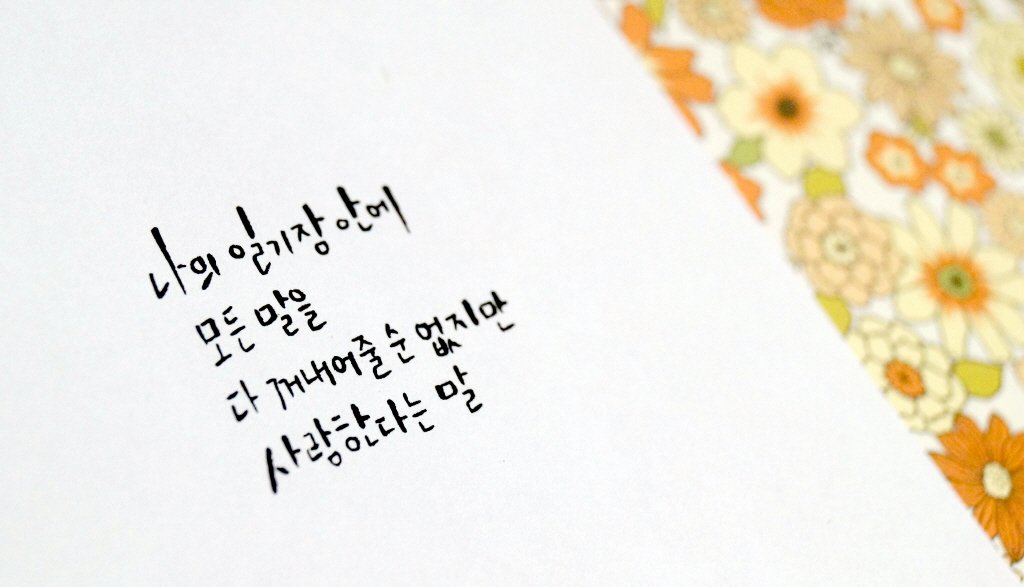 나의 일기장 안에
모든 말을
다 꺼내어줄 순 없지만
사랑한다는 말